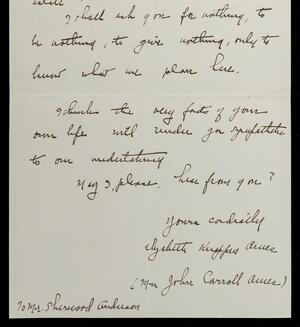 I shall ask you for nothing, to
be nothing, to give nothing, only to
know what we plan here.
I think the very facts of your
own life will render you sympathetic
to our undertaking
May I, please, hear from you?
Yours cordially
Elizabeth Knapp Ames
(Mrs John Carroll Ames)
To Mr. Sherwood Anderson